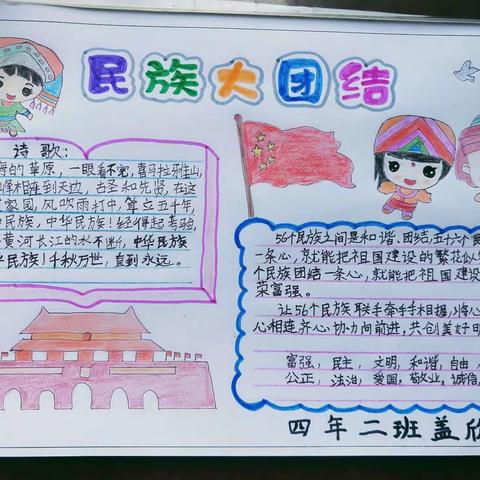 民族大团结
诗歌:
海的草原,一眼看不完,喜马拉雅山,
绵相连到天边,古圣和先贤,在这
家园,风吹雨打中,耸立五千年,
民族,中华民族!经得起考验,
黄河长江的水不断,中华民族
民族!千秋万世,直到永远。
56个民族之间是和谐、团结,五十六个民
一条心,就能把祖国建设的繁花似
个民族团结一条心,就能把祖国建设
荣富强。
让56个民族联手牵手相握,将心
心相连齐心协力向前进,共创美好明
富强,民主,文明,和谐,自由,
公正,法治,爱国,敬业,诚信,
四年二班盖欣